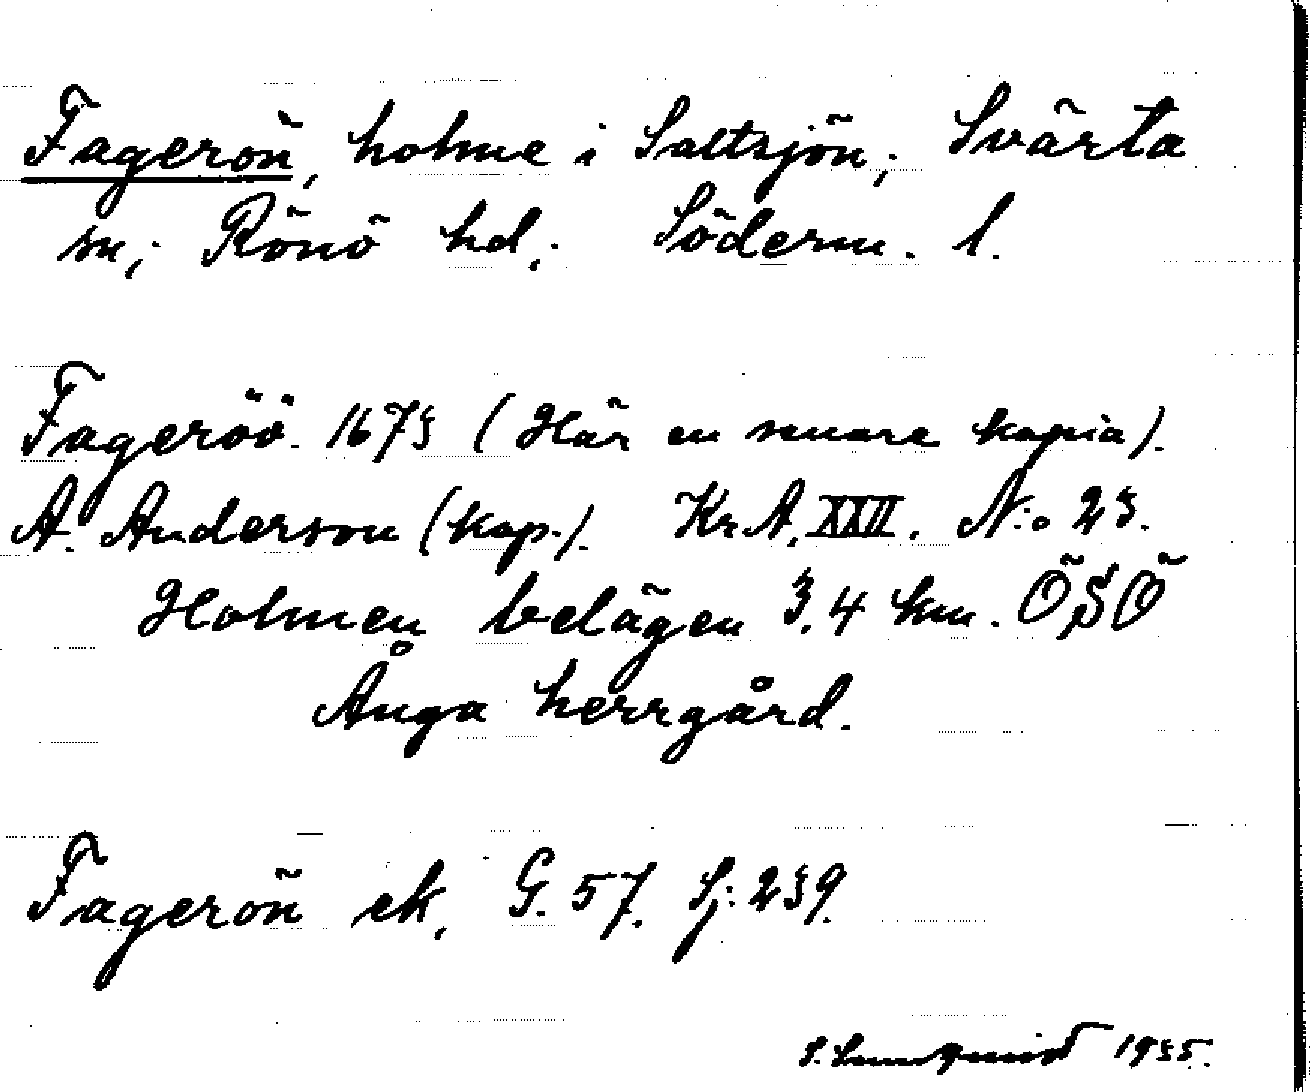 Fagerön, holme i Saltsjön; Svärta
sn; Rönö hd; Söderm. l.
Fageröö. 1673 (Här en senare kopia).
A. Anderson (kop.). Kr.A. XXII. N:o 23.
Holmen belägen 3,4 km. ÖSÖ
Ånga herrgård.
Fagerön ek. G. 57. Sj: 239.
S. Lundqvist 1935.